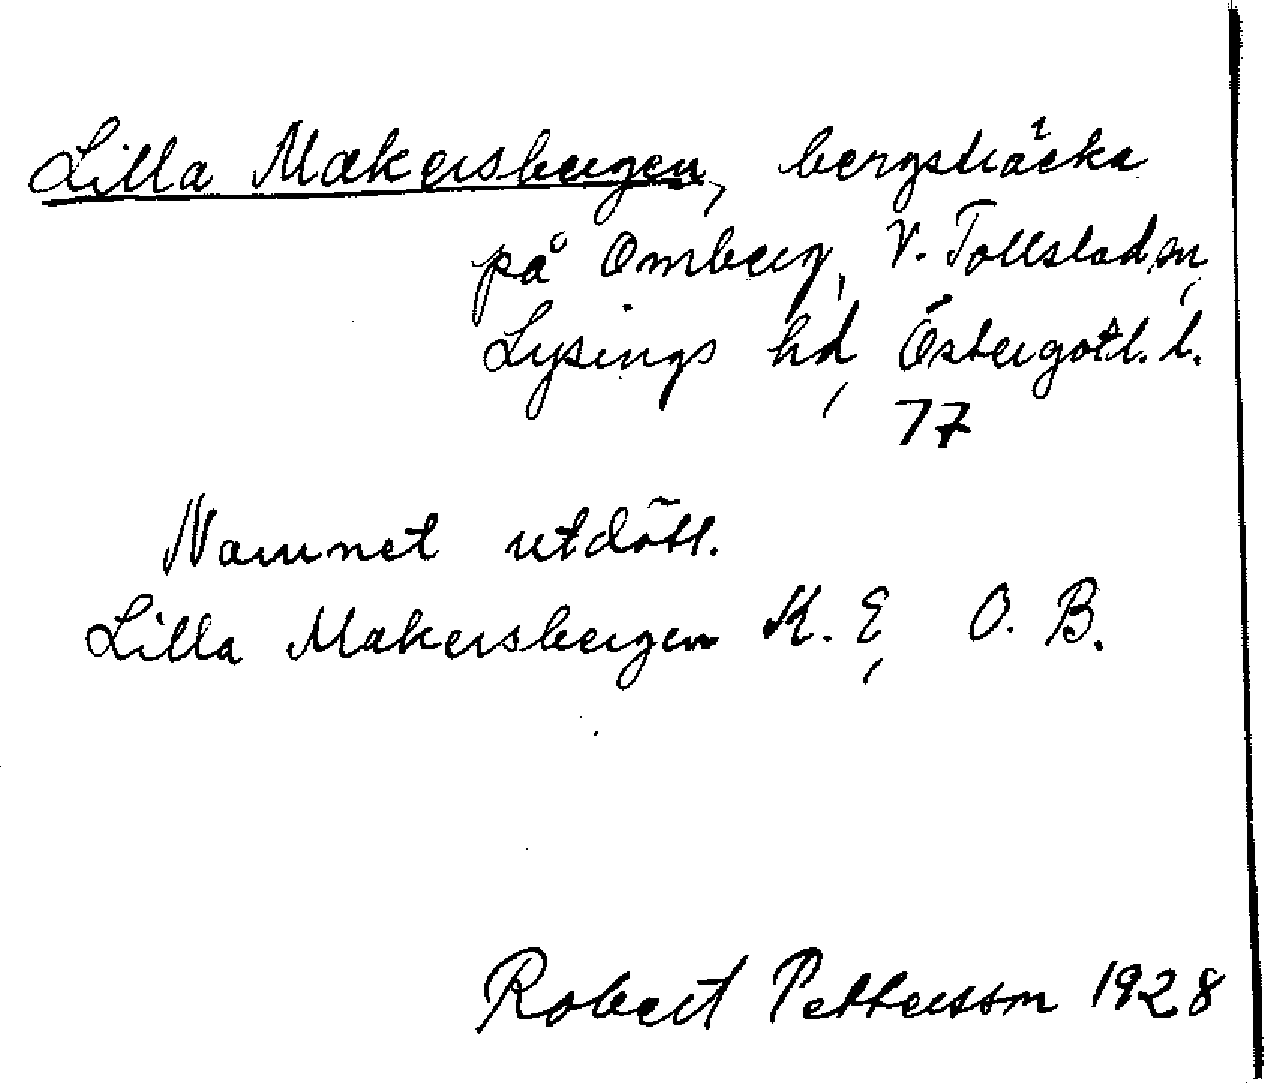 Lilla Makersbergen, bergsträcka
på Omberg, V. Tollstad sn,
Lysings hd, Östergötl. l.
77
Namnet utdött.
Lilla Makersbergen K. E, O. B.
Robert Pettersson 1928